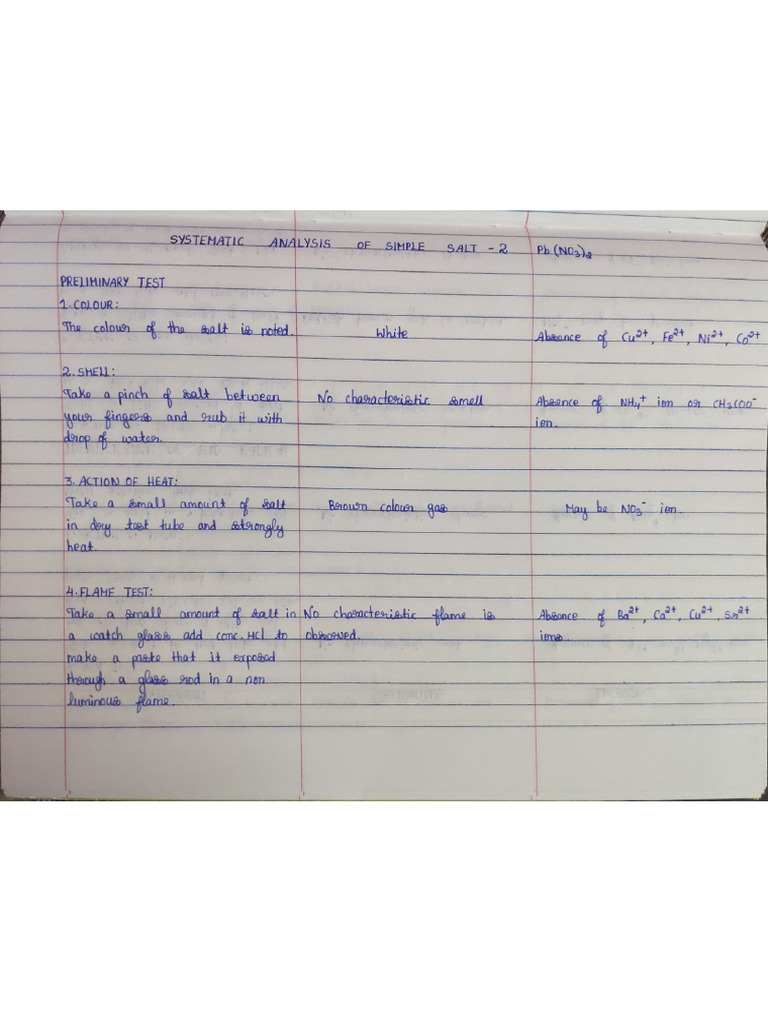 SYSTEMATIC ANALYSIS OF SIMPLE SALT - 2 Pb(NO3)2
PRELIMINARY TEST
1. COLOUR:
The colour of the salt is noted. White Absence of Cu2+, Fe2+, Ni2+, Co2+
2. SMELL:
Take a pinch of salt between No characteristic smell Absence of NH4+ ion or CH3COO-
your fingers and rub it with ion.
drop of water.
3. ACTION OF HEAT:
Take a small amount of salt Brown colour gas May be NO3- ion.
in dry test tube and strongly
heat.
4. FLAME TEST:
Take a small amount of salt in No characteristic flame is Absence of Ba2+, Ca2+, Cu2+, Sr2+
a watch glass add conc. HCl to observed. ions.
make a paste that it exposed
through a glass rod in a non
luminous flame.